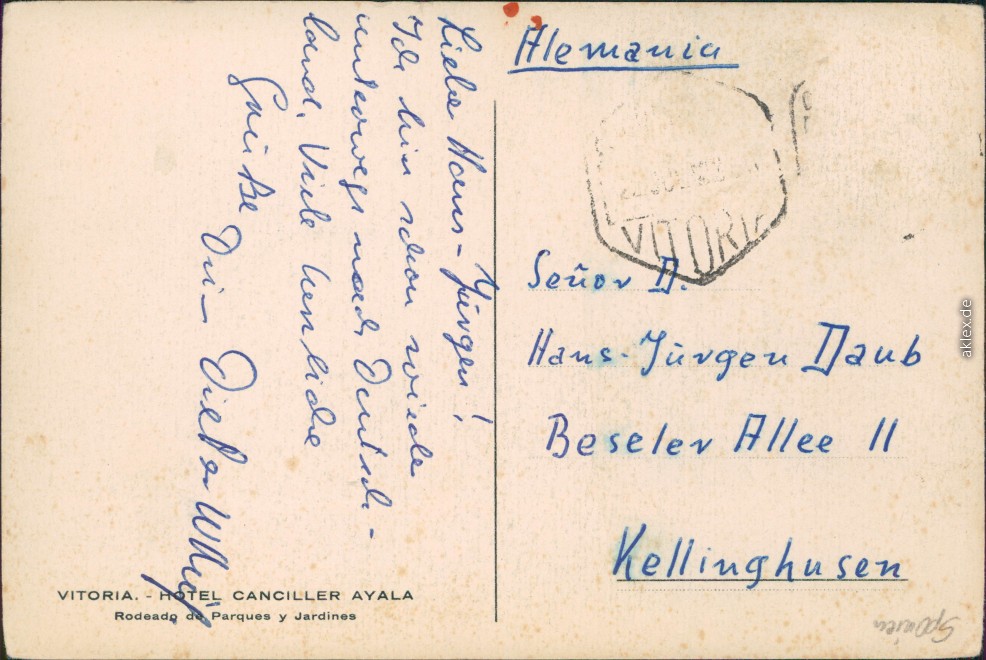 Liebe Hans-Jürgen!
Ich bin schon wieder
unterwegs nach Deutsch-
land. Viele herzliche
Grüße Dein Dieter
Alemania
VITORIA
Señor D.
Hans-Jürgen Daub
Beseler Allee 11
Kellinghusen
VITORIA. - HOTEL CANCILLER AYALA
Rodeado de Parques y Jardines
Spanien
aklex.de